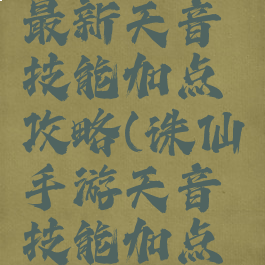 最新天音
技能加点
攻略(诛仙
手游天音
技能加点